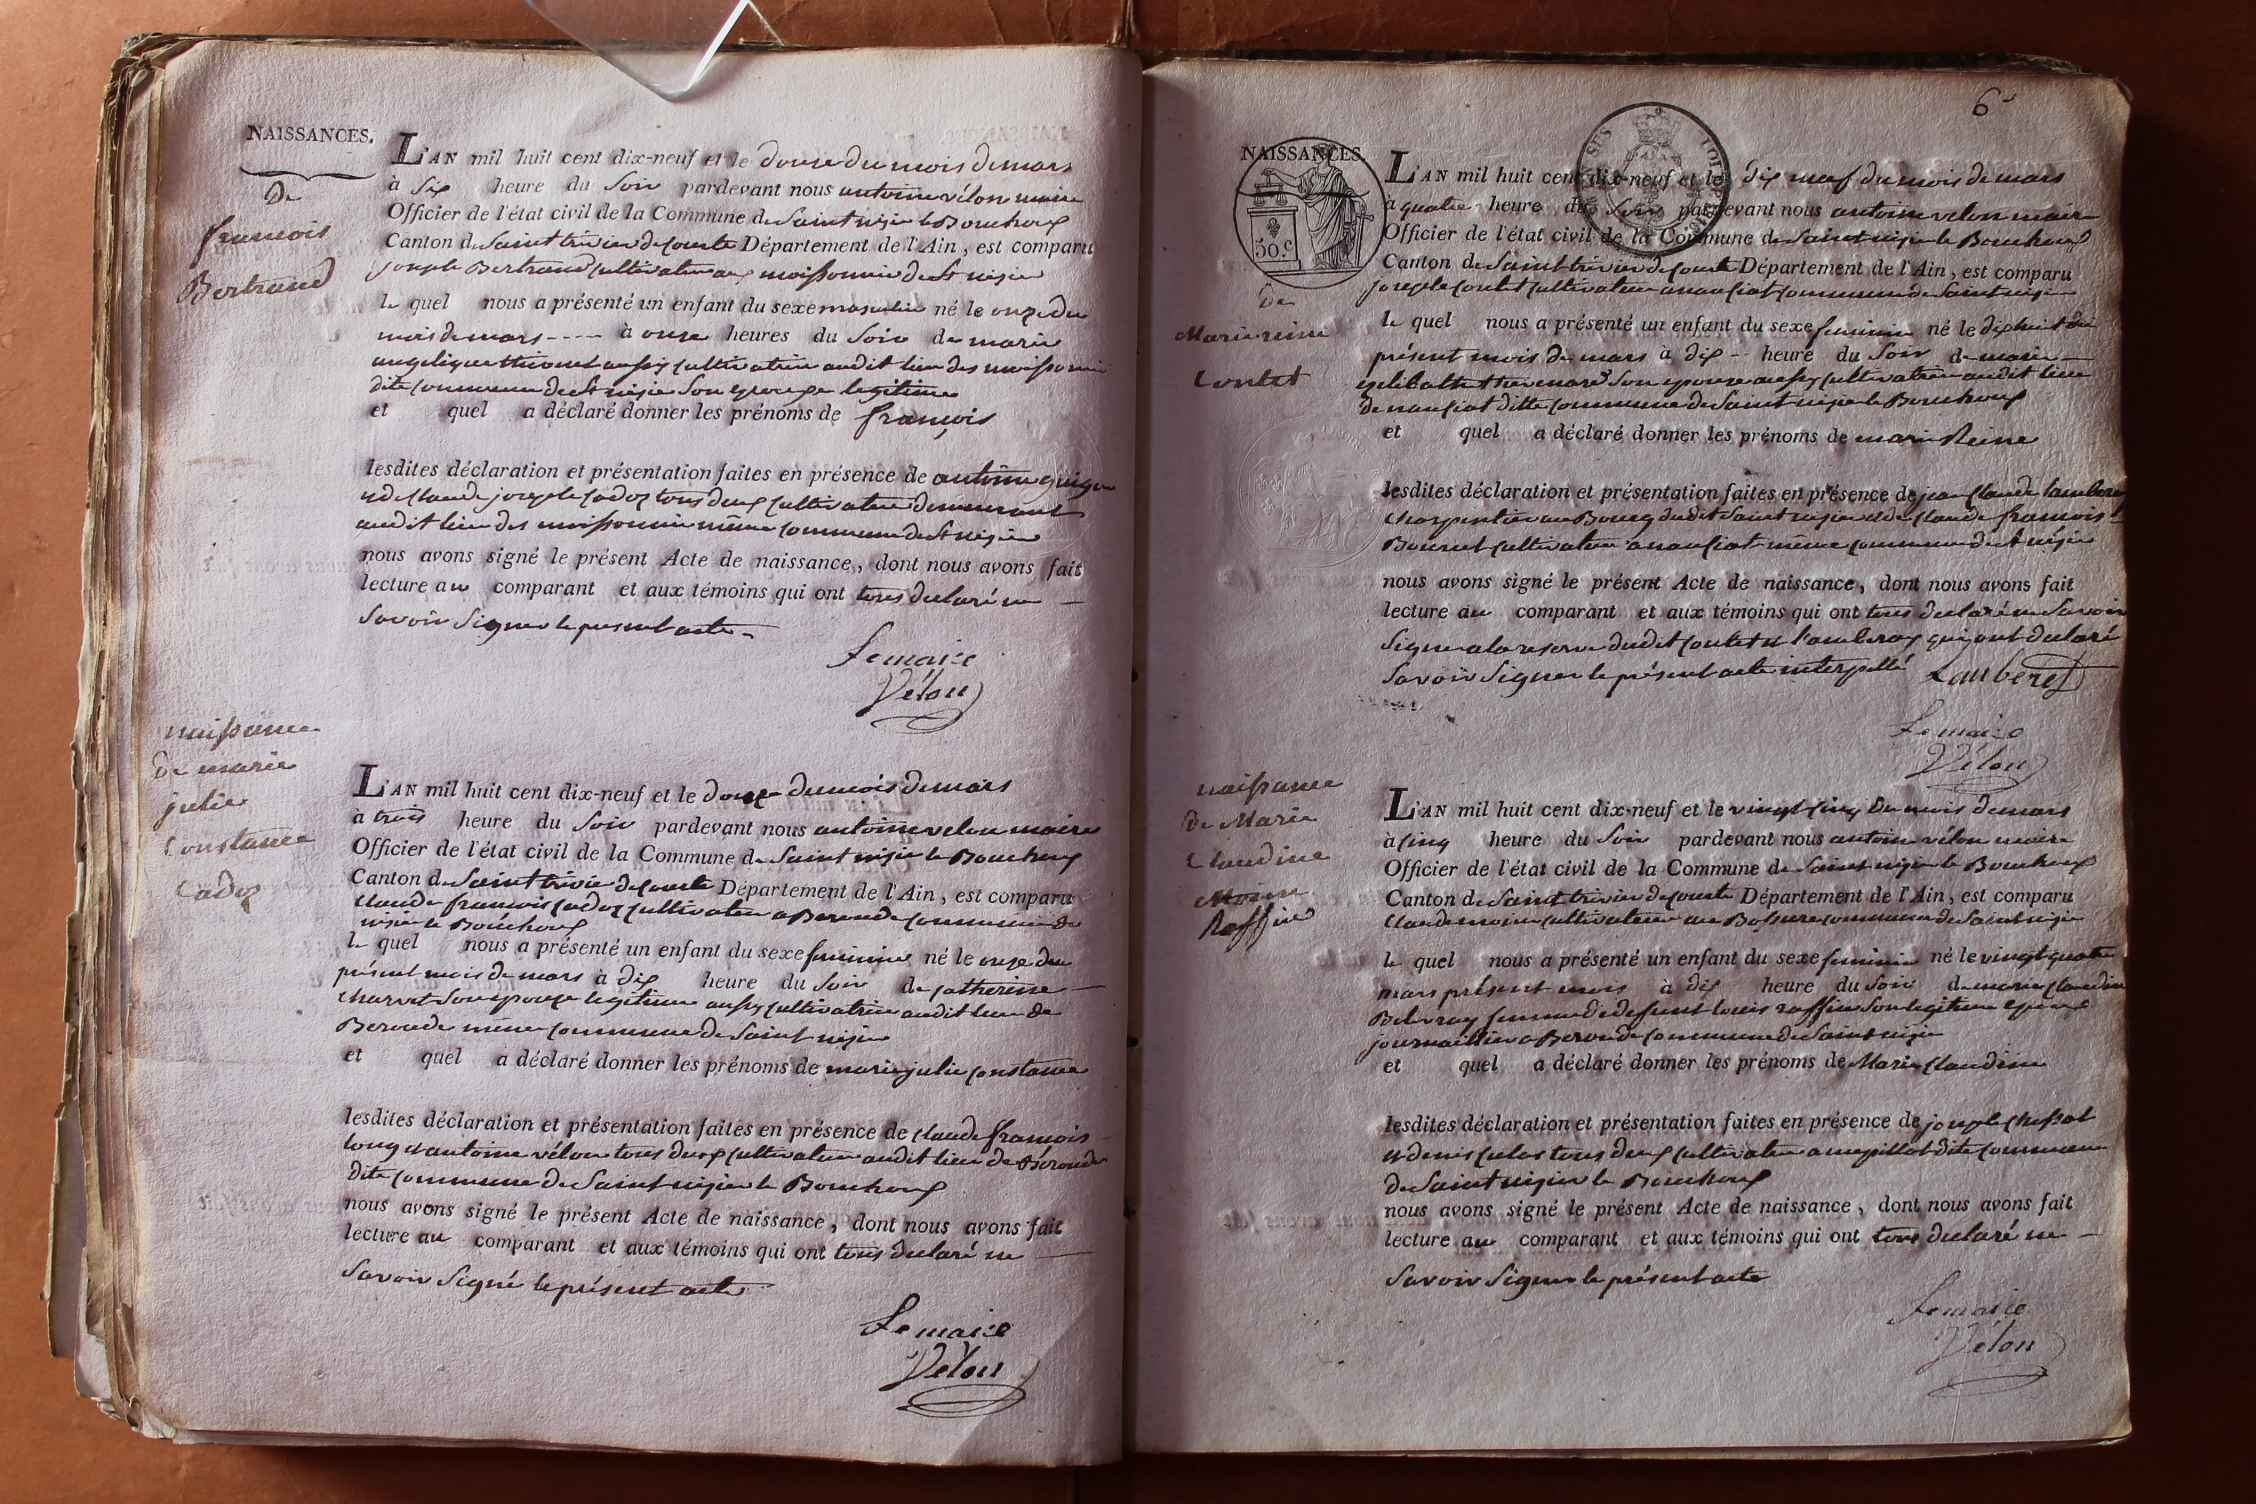 NAISSANCES.
De
françois
Bertrand
L'AN mil huit cent dix-neuf et le douze du mois de mars
à Six heure du Soir pardevant nous antoine vélon maire
Officier de l'état civil de la Commune de Saint nizier le Bouchoux
Canton de Saint trivier de Courte Département de l'Ain, est comparu
joseph Bertrand cultivateur aux moissonnier de St nizier
le quel nous a présenté un enfant du sexe masculin né le onze du
mois de mars ---- à onze heures du Soir de marie
angelique aussy cultivatrice audit lieu des moissonnier
dite commune de St nizier Son epouze legitime
et quel a déclaré donner les prénoms de françois
lesdites déclaration et présentation faites en présence de antoine
et de Claude joseph Cadoz tous deux cultivateur demeurant
audit lieu des moissonnier même commune de St nizier
nous avons signé le présent Acte de naissance, dont nous avons fait
lecture au comparant et aux témoins qui ont tous declaré ne
Savoir Signer le present acte
Le maire
Vélon
naissance
de marie
julie
Constance
Cadoz
L'AN mil huit cent dix-neuf et le douze du mois de mars
à trois heure du Soir pardevant nous antoine velon maire
Officier de l'état civil de la Commune de Saint nizier le Bouchoux
Canton de Saint trivie de Courte Département de l'Ain, est comparu
Claude françois Cadoz cultivateur a Beroude commune de
nizier le Bouchoux
le quel nous a présenté un enfant du sexe feminin né le onze du
présent mois de mars à dix heure du Soir de Catherine
Charvet Son epouze legitime aussy cultivatrice audit lieu de
Beroude même commune de Saint nizier
et quel a déclaré donner les prénoms de marie julie Constance
lesdites déclaration et présentation faites en présence de Claude françois
long et antoine vélon tous deux cultivateur audit lieu de Béroude
dite commune de Saint nizier le Bouchoux
nous avons signé le présent Acte de naissance, dont nous avons fait
lecture au comparant et aux témoins qui ont tous declaré ne
Savoir Signé le présent acte
Le maire
Vélon
6
NAISSANCES.
30 c
De
Marie reine
Contet
L'AN mil huit cent dix-neuf et le dix neuf du mois de mars
à quatre heure du Soir pardevant nous antoine velon maire
Officier de l'état civil de la Commune de Saint nizier le Bouchoux
Canton de Saint trivier de Courte Département de l'Ain, est comparu
joseph Contet cultivateur a nanciat commune de Saint nizier
le quel nous a présenté un enfant du sexe feminin né le dix huit du
présent mois de mars à dix -- heure du Soir de marie
Son epouze aussy cultivatrice audit lieu
de nanciat ditte commune de Saint nizier le Bouchoux
et quel a déclaré donner les prénoms de marie Reine
lesdites déclaration et présentation faites en présence de jean Claude lamberey
Charpentier au Bourg dudit Saint nizier et de Claude françois
Bourret cultivateur a nanciat même commune de St nizier
nous avons signé le présent Acte de naissance, dont nous avons fait
lecture au comparant et aux témoins qui ont tous declaré ne Savoir
Signer a la reserve dudit Contet et lamberey qui ont declaré
Savoir Signer le présent acte interpellé
Lamberey
Le maire
Vélon
naissance
de Marie
Claudine
Moine
Raffin
L'AN mil huit cent dix-neuf et le vingt cinq du mois de mars
à cinq heure du Soir pardevant nous antoine vélon maire
Officier de l'état civil de la Commune de Saint nizier le Bouchoux
Canton de Saint trivier de Courte Département de l'Ain, est comparu
Claude moine cultivateur au commune de Saint nizier
le quel nous a présenté un enfant du sexe feminin né le vingt quatre
mars présent mois à dix heure du Soir de marie Claudine
Belevray femme de defunt louis raffin Son legitime epoux
journallier a Beroude commune de Saint nizier
et quel a déclaré donner les prénoms de Marie Claudine
lesdites déclaration et présentation faites en présence de joseph
et denis tous deux cultivateur a dite commune
de Saint nizier le Bouchoux
nous avons signé le présent Acte de naissance, dont nous avons fait
lecture au comparant et aux témoins qui ont tous declaré ne
Savoir Signer le présent acte
Le maire
Vélon